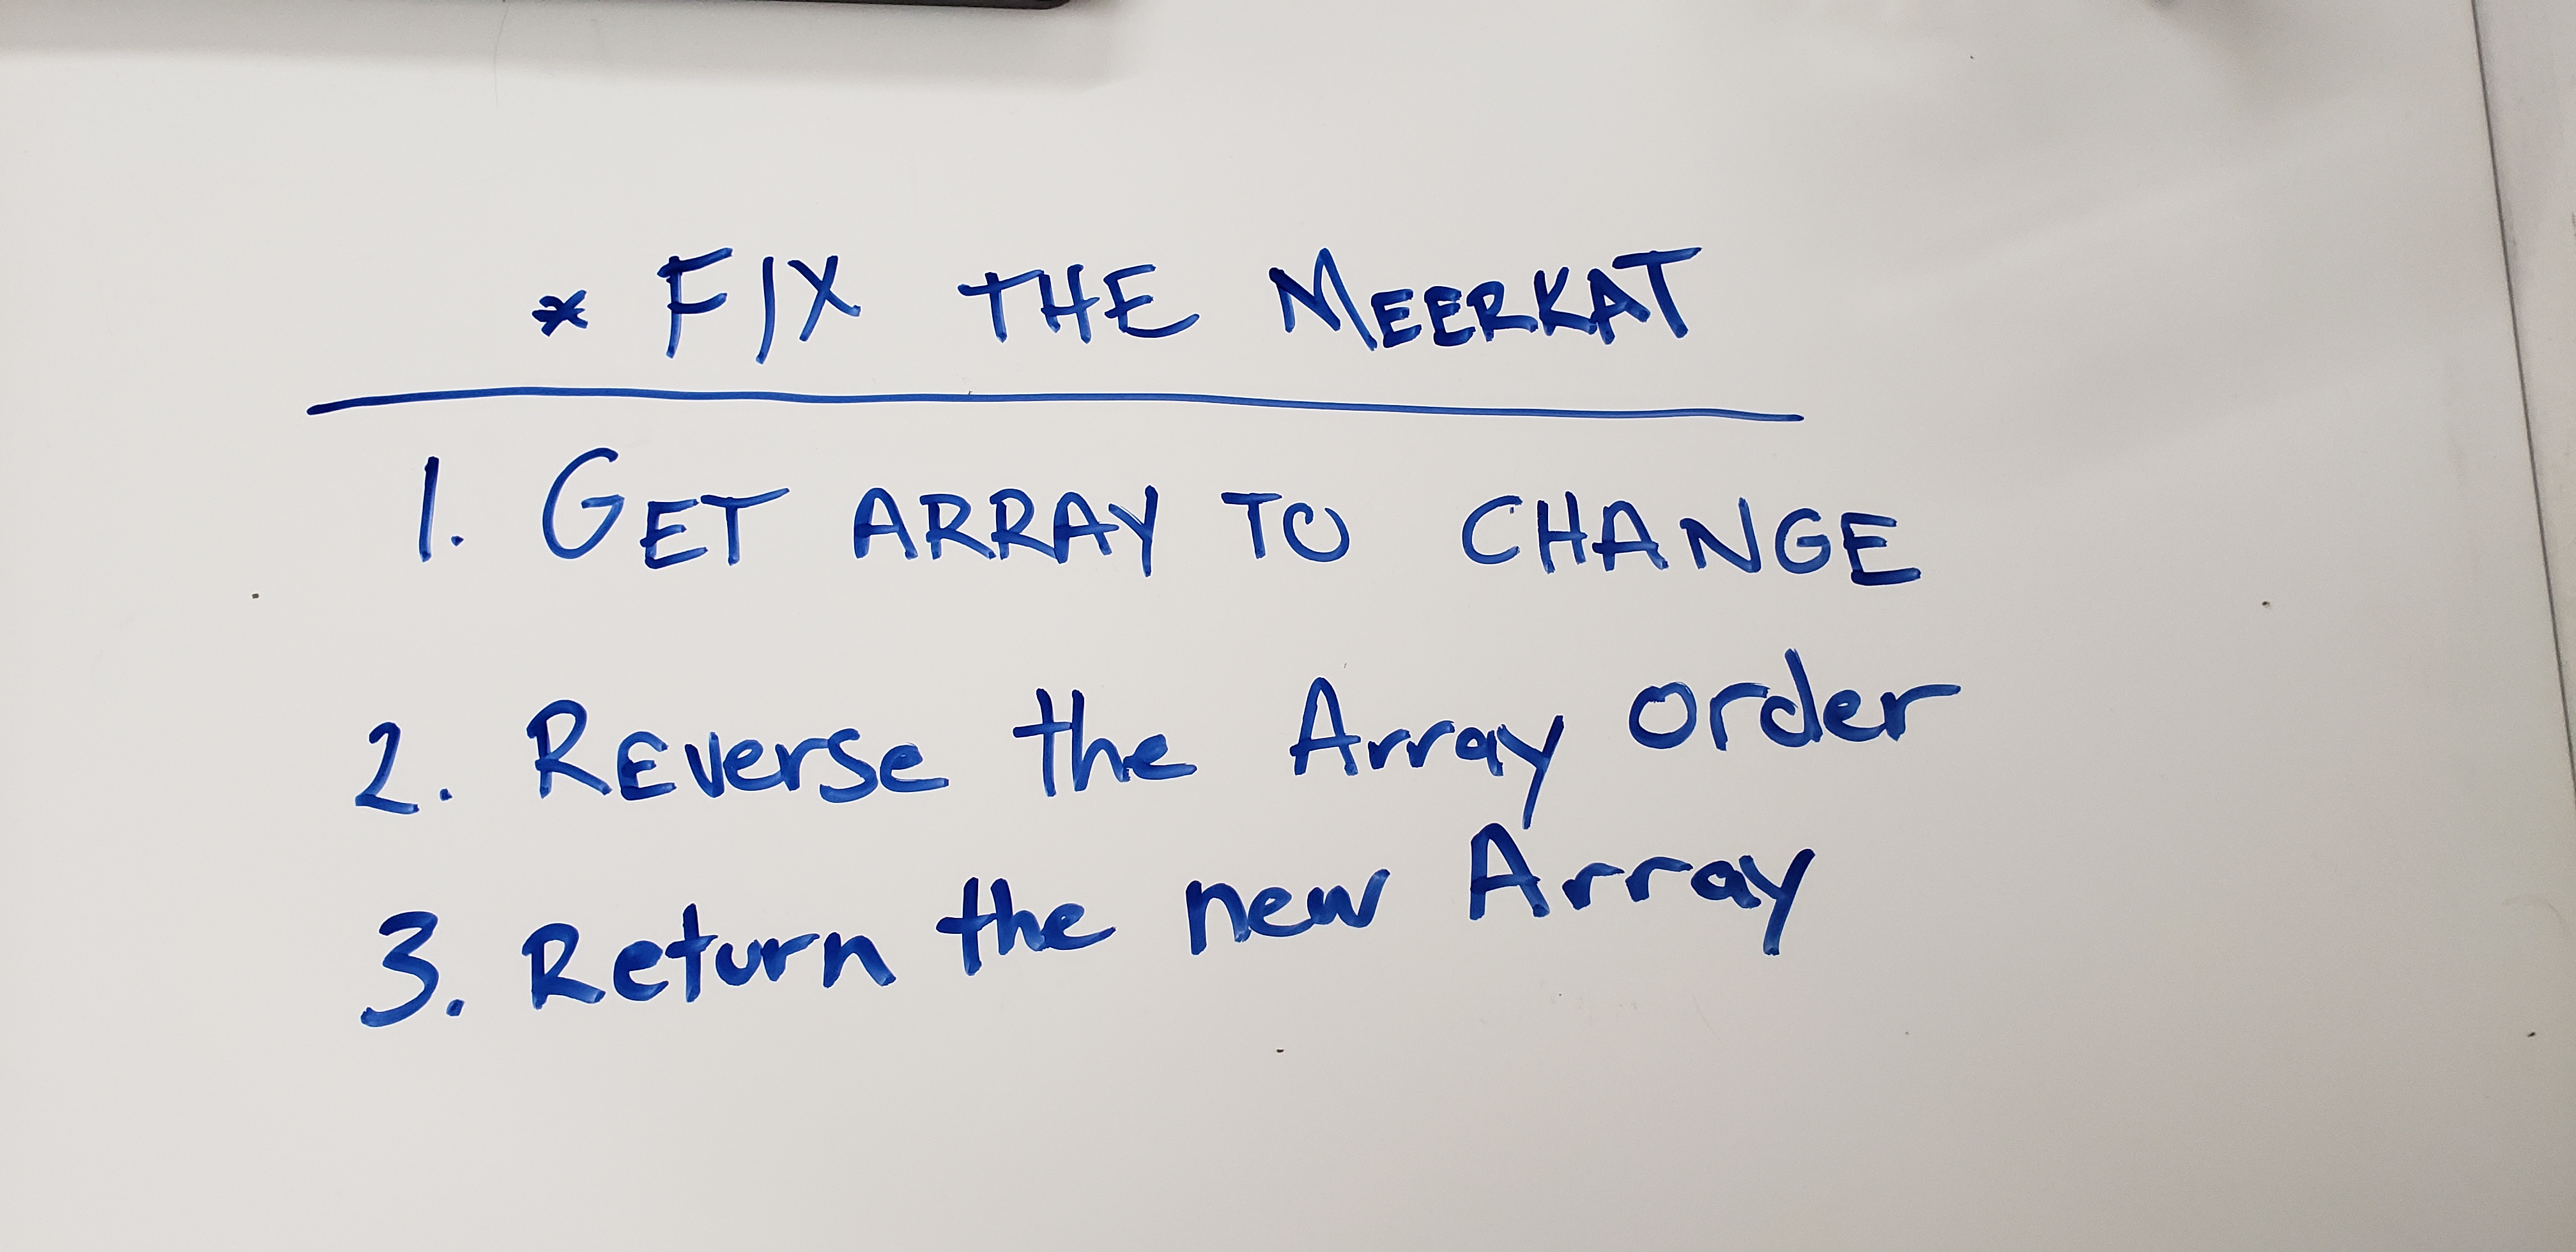 * FIX THE MEERKAT
1. GET ARRAY TO CHANGE
2. REverse the Array order
3. Return the new Array